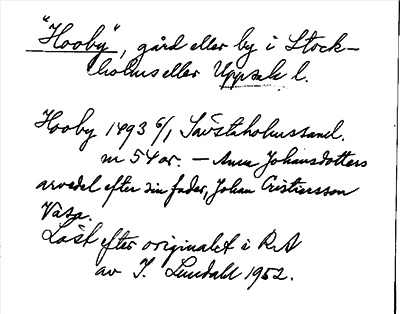 "Hooby", gård eller by i Stock-
holms eller Uppsala l.
Hooby 1493 6/1 Sävstaholmssaml.
nr 54 or. — Anna Johansdotters
arvedel efter sin fader, Johan Cristiernsson
Vasa.
Läst efter originalet i RA
av I. Lundahl 1952.